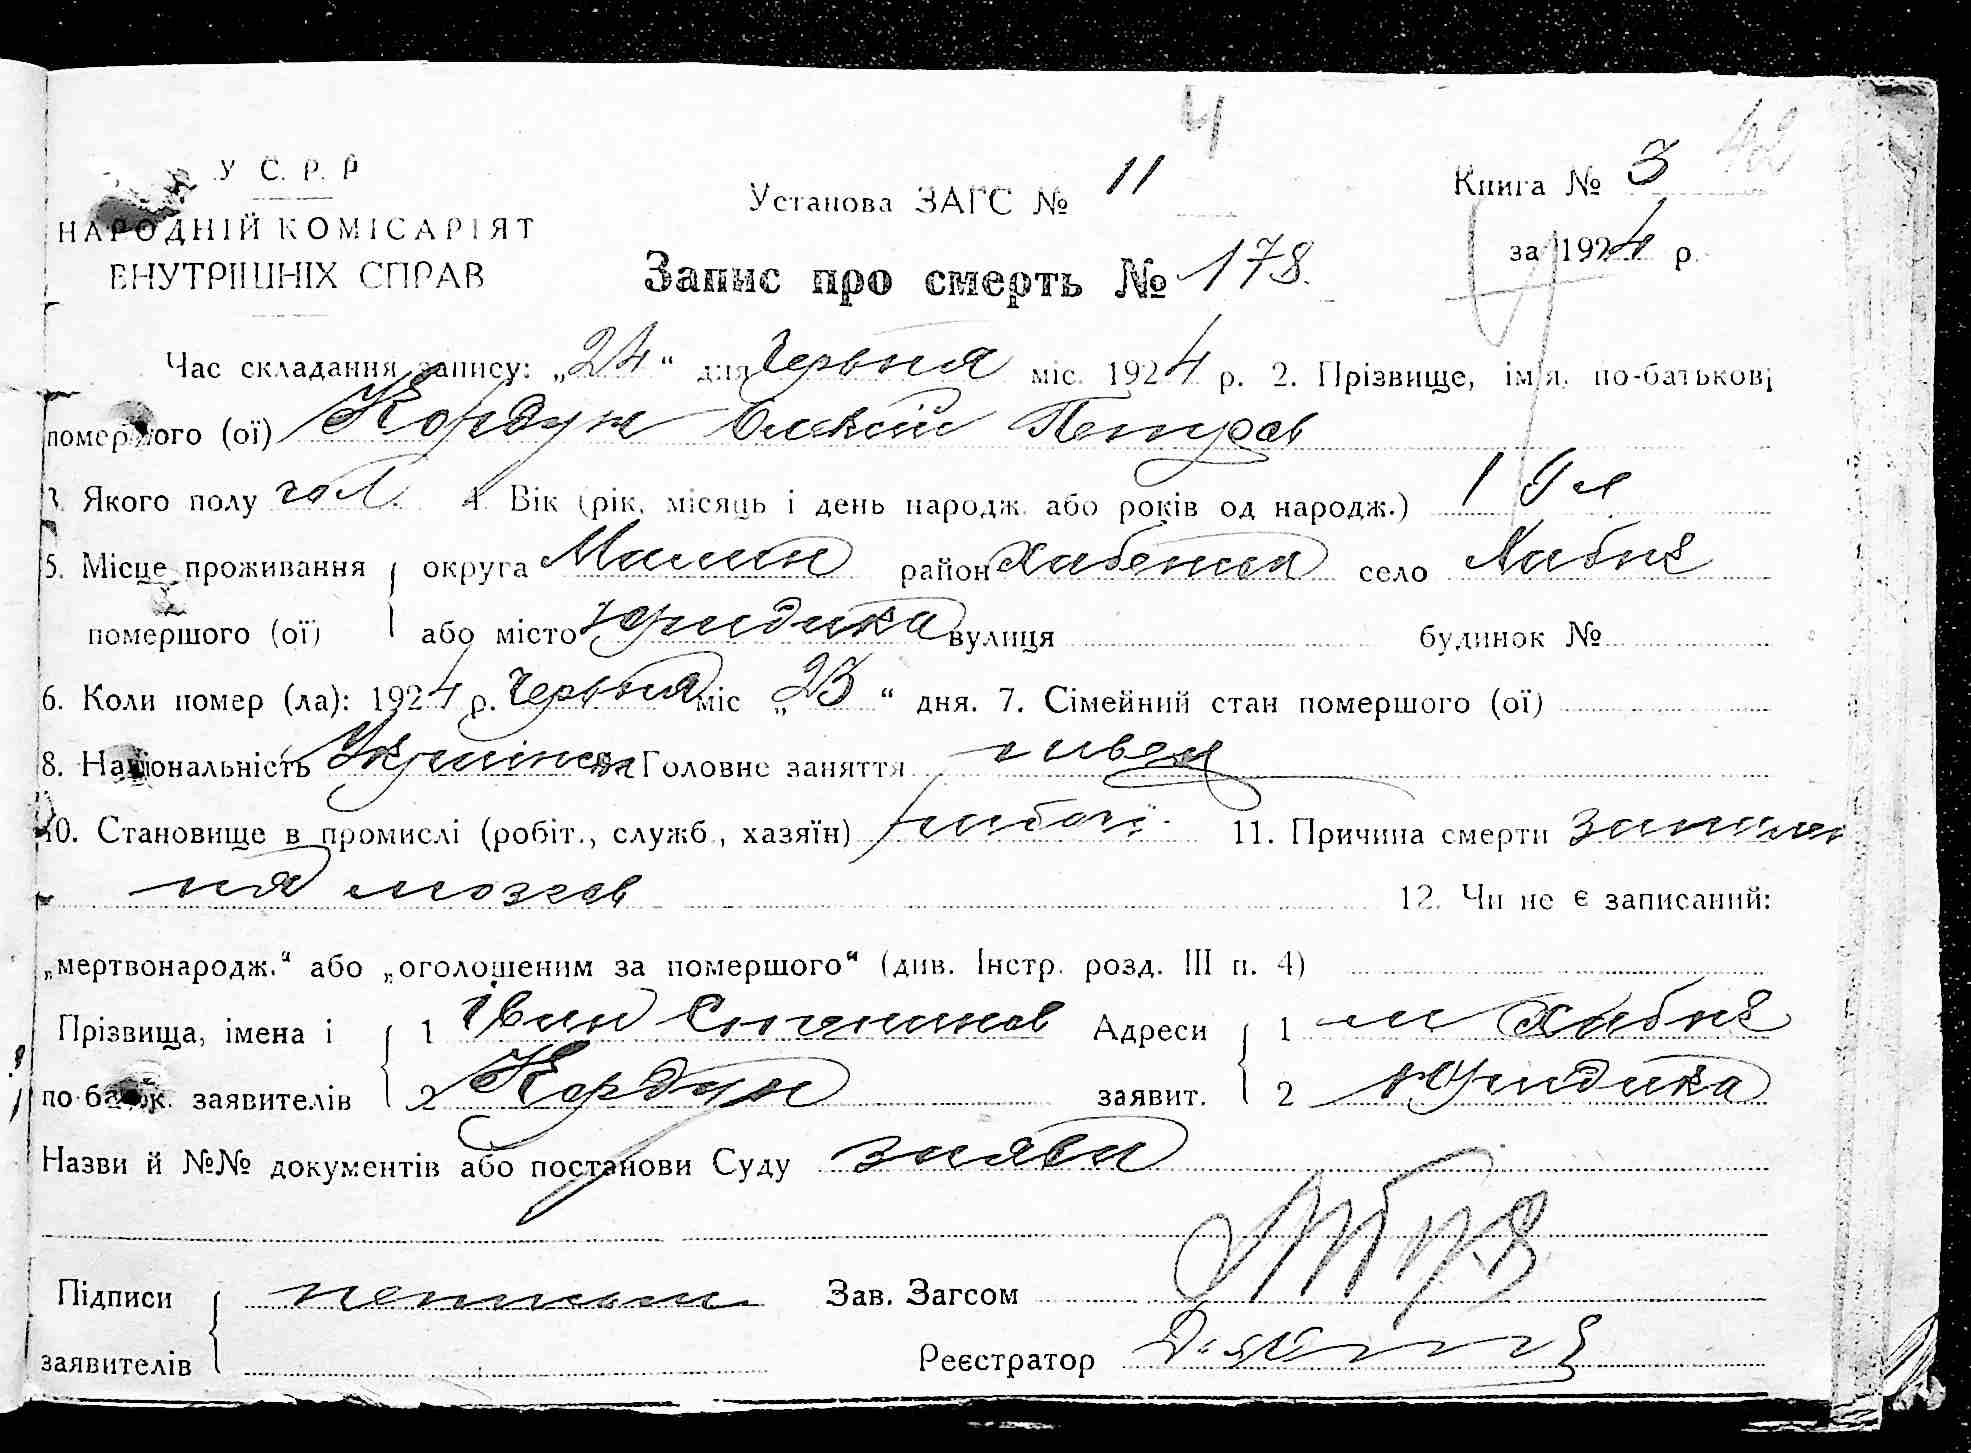 4
У С. Р. Р
Установа ЗАГС № 11
Книга № 3 42
НАРОДНІЙ КОМІСАРІЯТ
за 1924 р.
ВНУТРІШНІХ СПРАВ
Запис про смерть № 178.
Час складання запису: „24“ дня Червня міс. 1924 р. 2. Прізвище, ім'я, по-батькові
помершого (ої) Кордун Олексій Петров
3. Якого полу чол. 4. Вік (рік, місяць і день народж. або років од народж.) 1
5. Місце проживання округа Малин район село Хабне
помершого (ої) або місто Юридика вулиця будинок №
6. Коли помер (ла): 1924 р. Червня міс „23“ дня. 7. Сімейний стан помершого (ої)
8. Національність Головне заняття швец
10. Становище в промислі (робіт., служб., хазяїн) 11. Причина смерти запален
ня мозгов
12. Чи не є записаний:
„мертвонародж.“ або „оголошеним за помершого“ (див. Інстр. розд. III п. 4)
Прізвища, імена і 1 Іван Адреси 1 м Хабне
по батьк. заявителів 2 Кордун заявит. 2 Юридика
Назви й №№ документів або постанови Суду заява
Підписи Зав. Загсом
заявителів Реєстратор